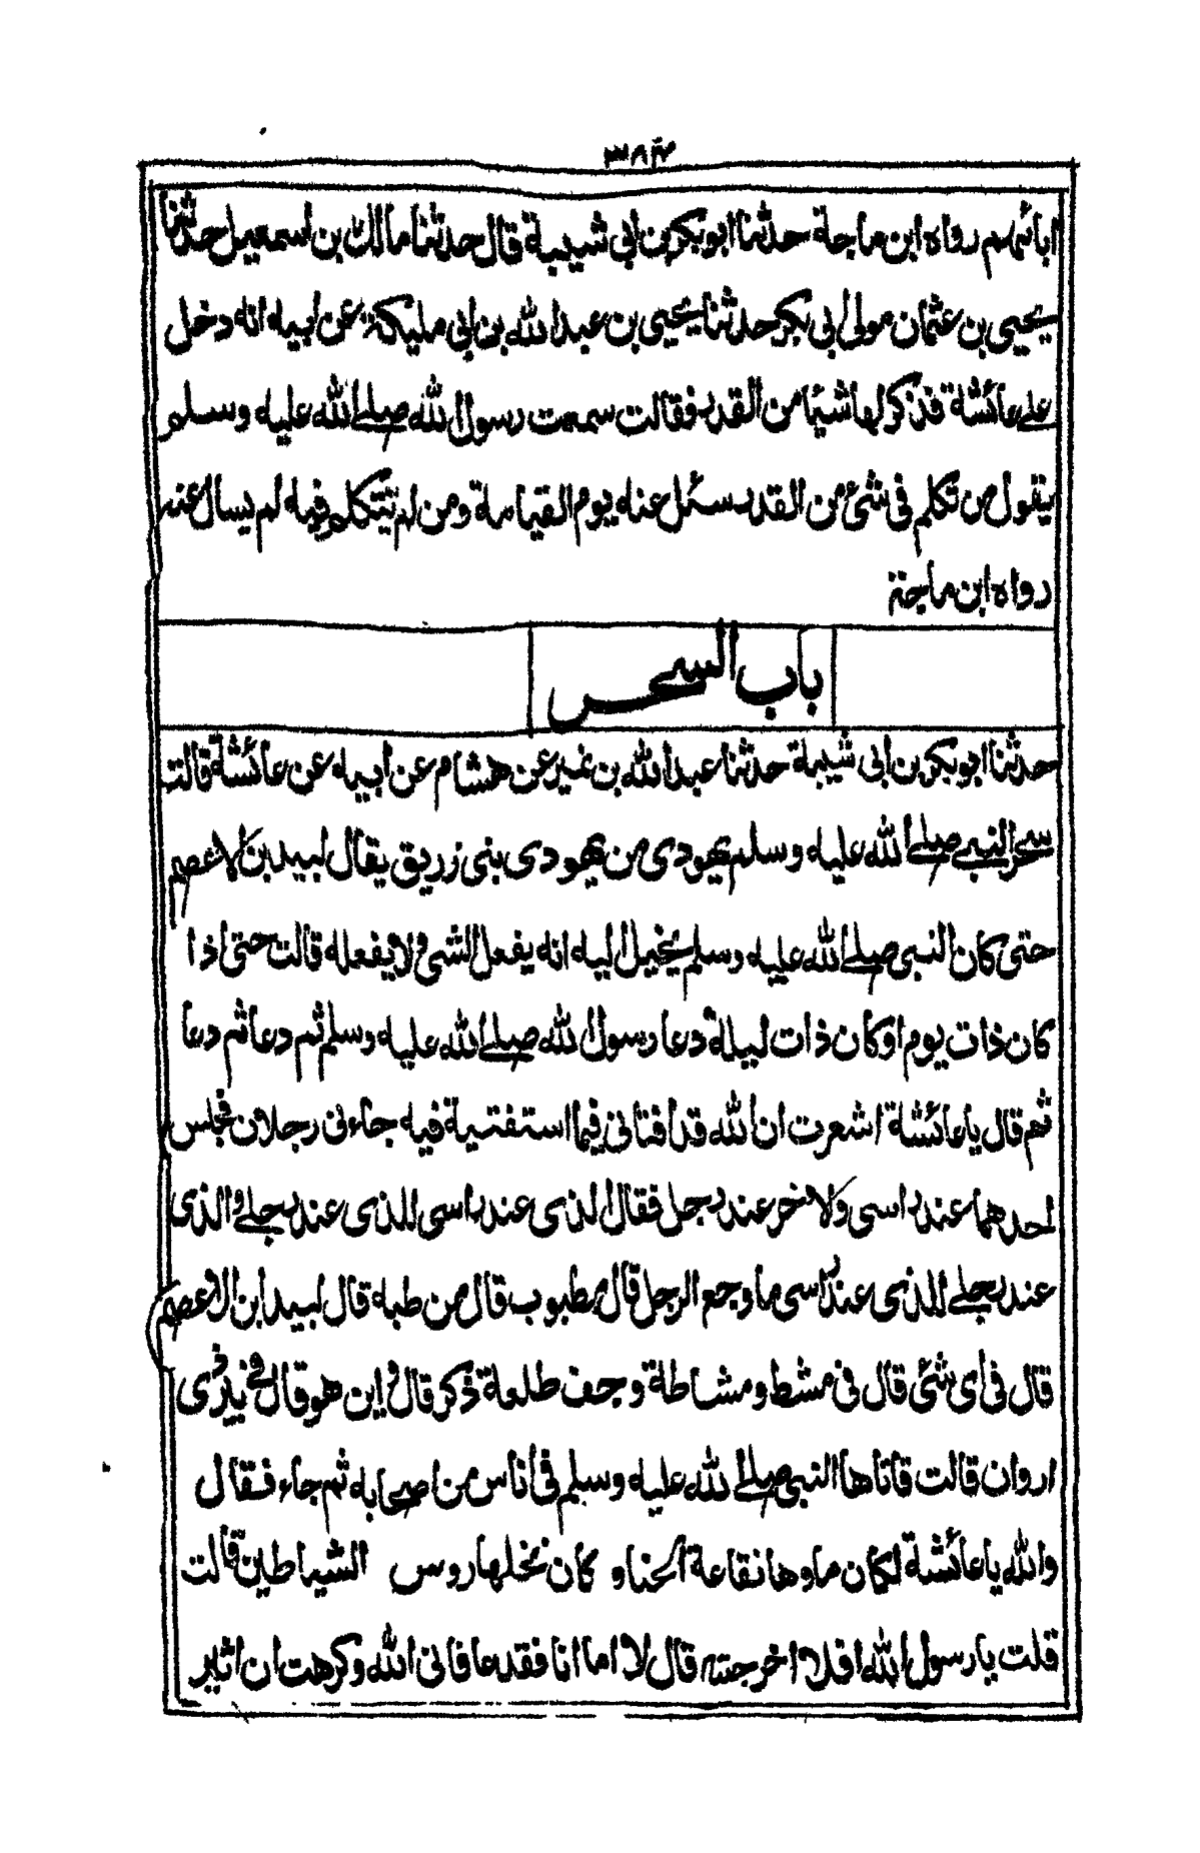 ٣٨٣
ابائهم رواه ابن ماجة حدثنا ابو بكر بن ابى شيبة قال حدثنا مالك بن اسمعيل حدثنا
يحيى بن عثمان مولى ابى بكر حدثنا يحيى بن عبد الله بن ابى مليكة عن ابيه انه دخل
على عائشة فذكر لها شيئا من القدر فقالت سمعت رسول الله صلے الله عليه وسلم
يقول من تكلم فى شئ من القدر سئل عنه يوم القيامة ومن لم يتكلم فيه لم يسال عنه
رواه ابن ماجة
باب السحر
حدثنا ابو بكر بن ابى شيبة حدثنا عبد الله بن نمير عن هشام عن ابيه عن عائشة قالت
سحر النبى صلے الله عليه وسلم يهودى من يهودى بنى زريق يقال لبيد بن الاعصم
حتى كان النبى صلے الله عليه وسلم يخيل اليه انه يفعل الشئ ولا يفعله قالت حتى اذا
كان ذات يوم او كان ذات ليلة دعا رسول الله صلے الله عليه وسلم ثم دعا ثم دعا
ثم قال يا عائشة اشعرت ان الله قد افتانى فيما استفتيته فيه جاءنى رجلان فجلس
احدهما عند راسى والاخر عند رجلى فقال الذى عند راسى للذى عند رجلے والذى
عند رجلے للذى عند راسى ما وجع الرجل قال مطبوب قال من طبه قال لبيد ابن الاعصم
قال فى اى شئ قال فى مشط ومشاطة وجف طلعة ذكر قال واين هو قال فى بير ذى
اروان قالت فاتاها النبى صلے الله عليه وسلم فى اناس من اصحابه ثم جاء فقال
والله يا عائشة لكان ماوها نقاعة الحنا و كان نخلها روس الشياطين قالت
قلت يا رسول الله افلا اخرجته قال لا اما انا فقد عافانى الله وكرهت ان اثير